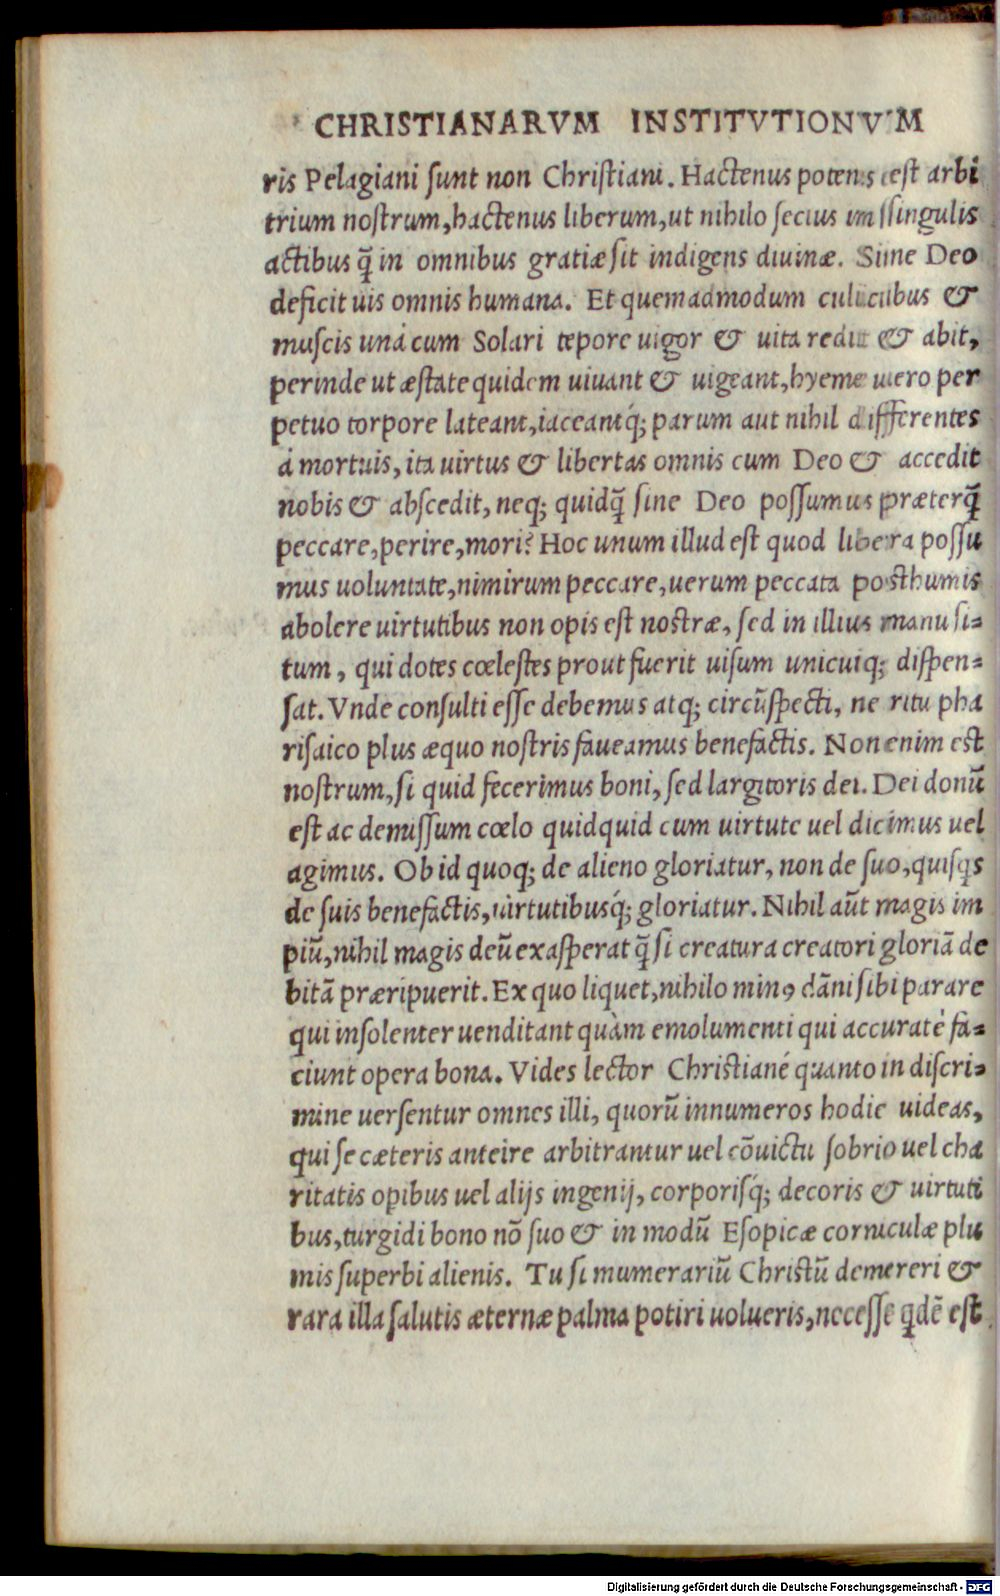 CHRISTIANARVM INSTITVTIONVM
ris Pelagiani ſunt non Chriſtiani. Hactenus potens eſt arbi
trium noſtrum, hactenus liberum, ut nihilo ſecius in ſingulis
actibus q̃ in omnibus gratiæ ſit indigens diuinæ. Sine Deo
deficit uis omnis humana. Et quemadmodum culicibus &
muſcis unà cum Solari tepore uigor & uita redit & abit,
perinde ut æſtate quidem uiuant & uigeant, hyeme uero per
petuo torpore lateant, iaceantq́; parum aut nihil differentes
à mortuis, ita uirtus & libertas omnis cum Deo & accedit
nobis & abſcedit, neq; quidq̃ ſine Deo poſſumus præterq̃
peccare, perire, mori? Hoc unum illud eſt quod libera poſſu
mus uoluntate, nimirum peccare, uerum peccata poſthumis
abolere uirtutibus non opis eſt noſtræ, ſed in illius manu ſi=
tum, qui dotes cœleſtes prout fuerit uiſum unicuiq; diſpen=
ſat. Vnde conſulti eſſe debemus atq; circũſpecti, ne ritu pha
riſaico plus æquo noſtris faueamus benefactis. Non enim eſt
noſtrum, ſi quid fecerimus boni, ſed largitoris dei. Dei donũ
eſt ac demiſſum cœlo quidquid cum uirtute uel dicimus uel
agimus. Ob id quoq; de alieno gloriatur, non de ſuo, quiſqs
de ſuis benefactis, uirtutibusq́; gloriatur. Nihil aũt magis im
piũ, nihil magis deũ exaſperat q̃ ſi creatura creatori gloriã de
bitã præripuerit. Ex quo liquet, nihilo minꝰ dãni ſibi parare
qui inſolenter uenditant quàm emolumenti qui accuratè fa=
ciunt opera bona. Vides lector Chriſtiané quanto in diſcri=
mine uerſentur omnes illi, quorũ innumeros hodie uideas,
qui ſe cæteris anteire arbitrantur uel cõuictu ſobrio uel cha
ritatis opibus uel alijs ingenij, corporiſq́; decoris & uirtuti
bus, turgidi bono nõ ſuo & in modũ Eſopicæ corniculæ plu
mis ſuperbi alienis. Tu ſi mumerariũ Chriſtũ demereri &
rara illa ſalutis æternæ palma potiri uolueris, neceſſe qdẽ eſt
Digitalisierung gefördert durch die Deutsche Forschungsgemeinschaft - DFG